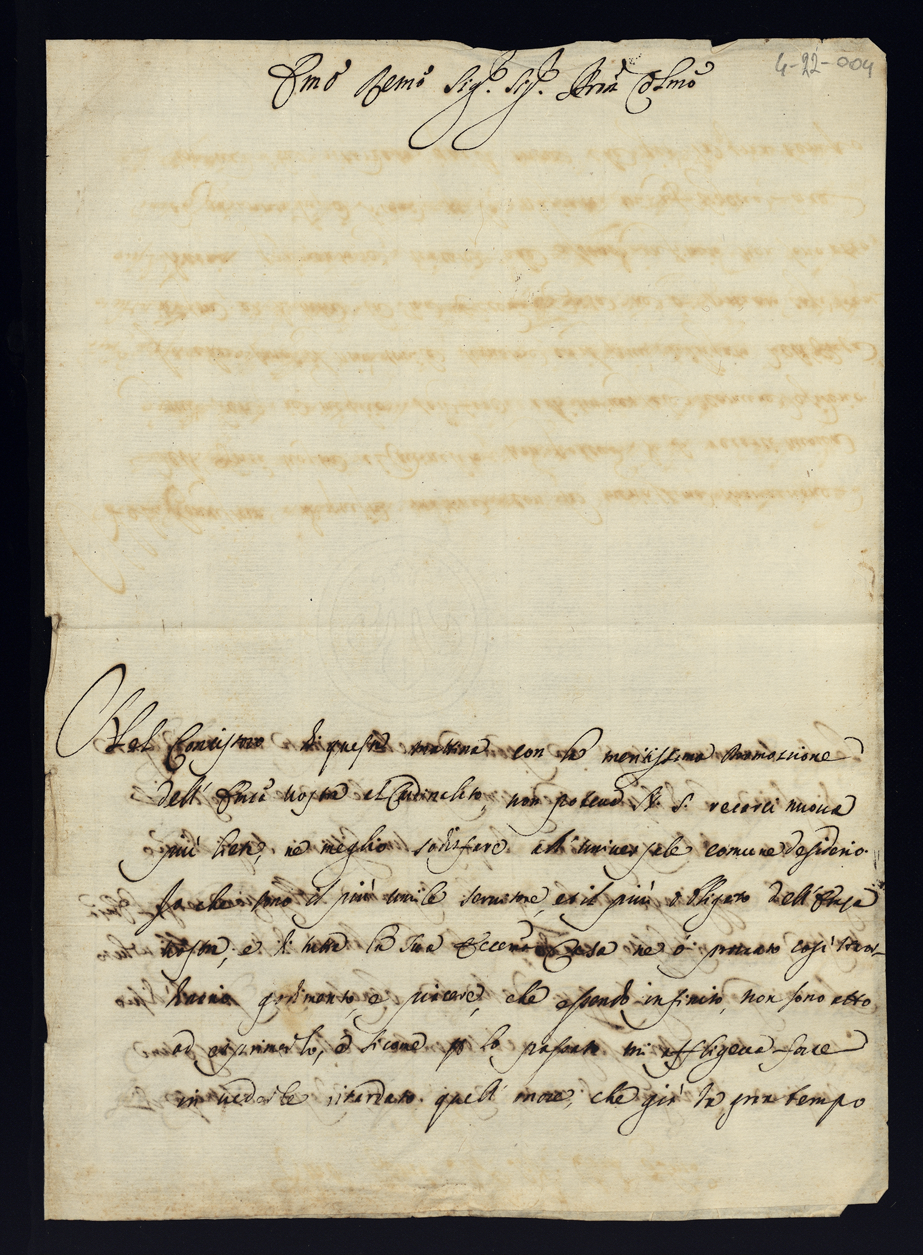 4-22-004
Emo Remo Sig.r Sig.r Prõn Colmo
Nel Concistoro di questa mattina con la meritissima Promozione
dell' Emza Vostra al Cardinalato, non poteva N. S. recarci nuova
più lieta, ne meglio sodisfare all' universale comune desiderio.
Io che sono il più umile servitore, et il più obligato dell' Emza
Vostra, e di tutta la Sua Eccma Casa ne ò provato così straor-
dinario godimento, e piacere, che essendo infinito, non sono atto
ad esprimerlo, e sicome per lo passato mi affligeva forte
in vederle ritardato quell' onore, che già da gran tempo